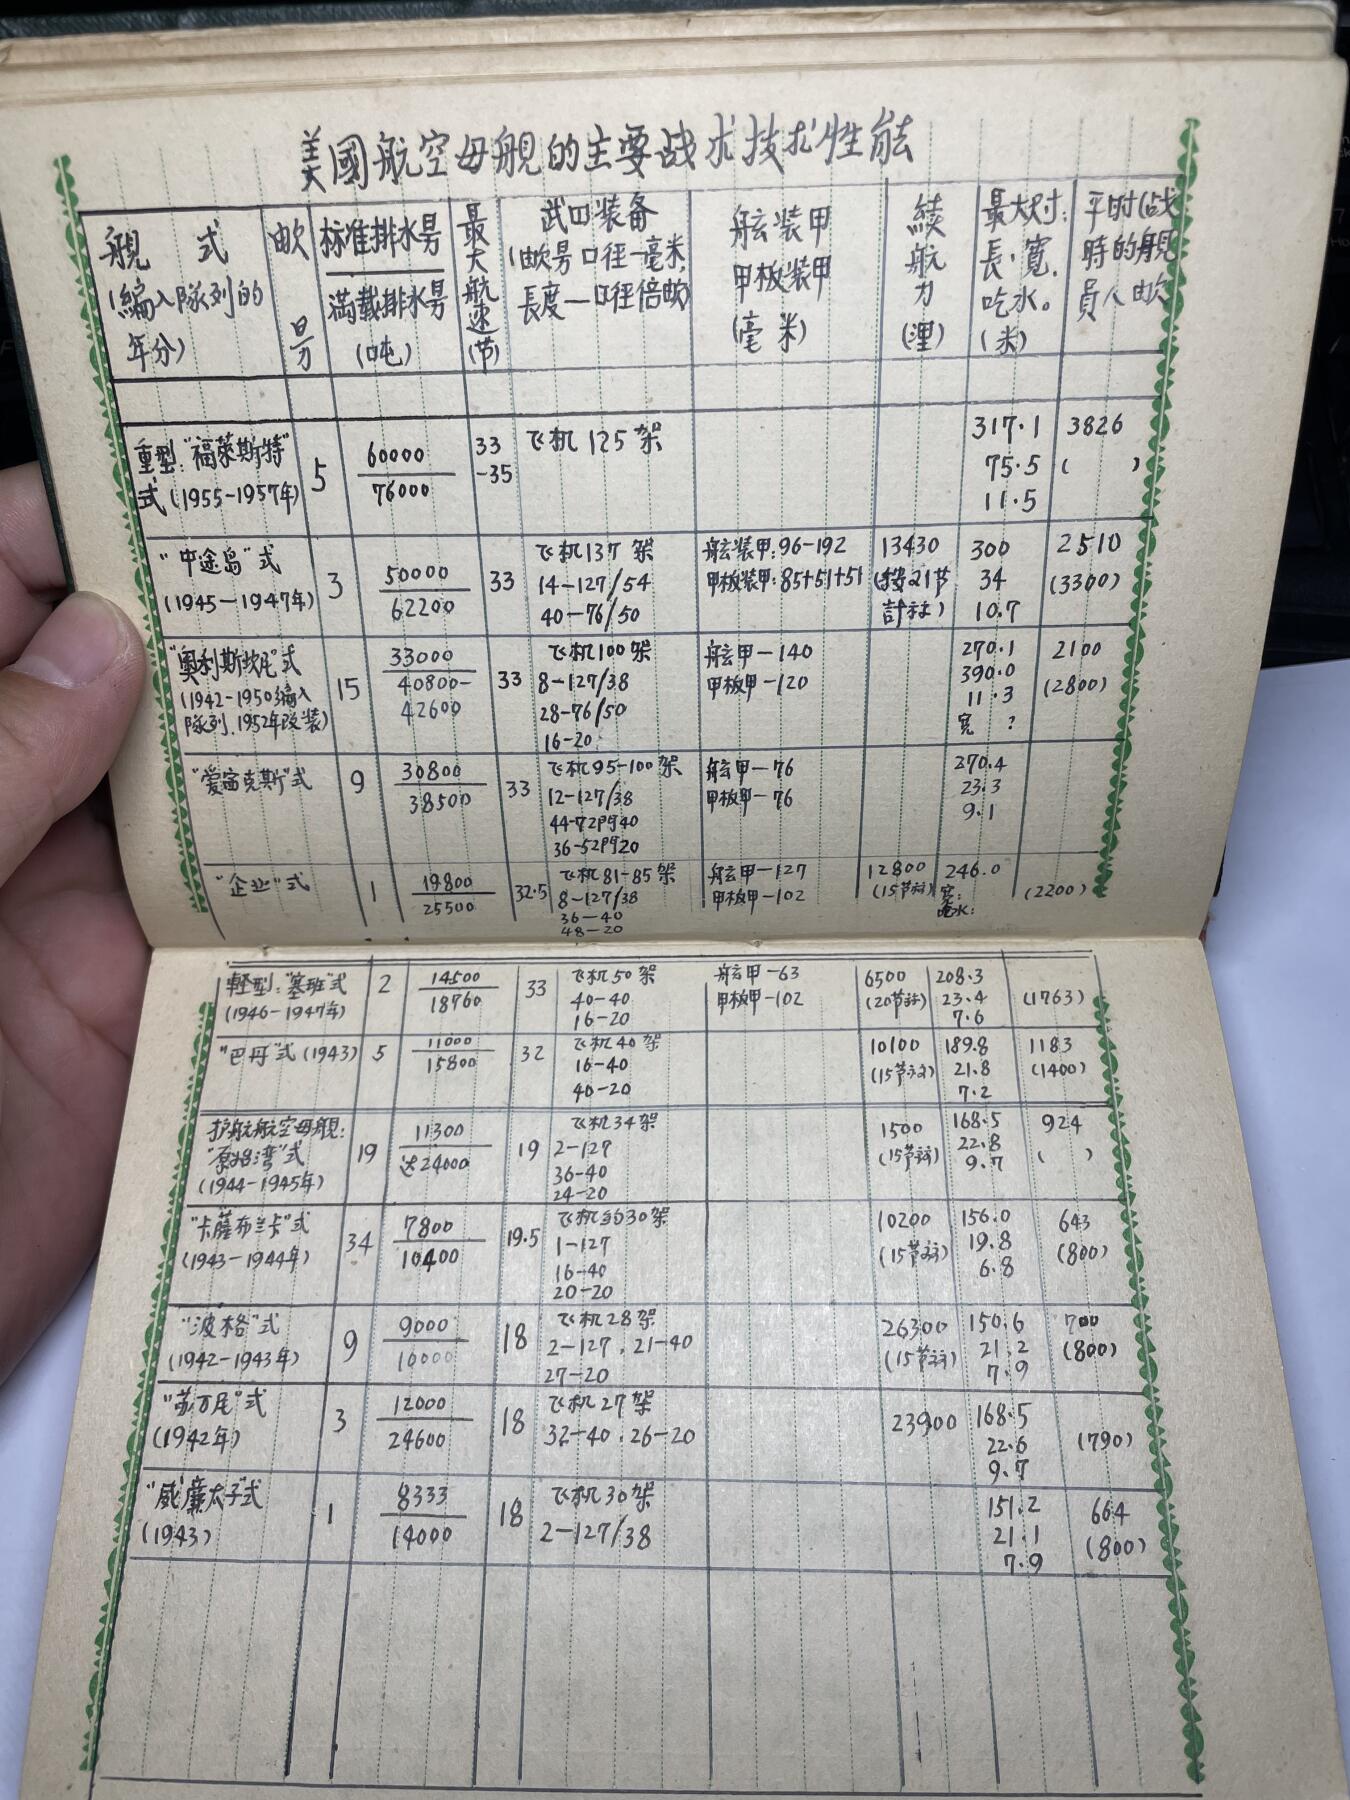 美國航空母舰的主要战术技术性能
舰 式 (編入隊列的年分)
数 量
标准排水量 满載排水量 (吨)
最大航速(节)
武器装备 (数量 口径—毫米, 長度—口径倍数)
舷装甲 甲板装甲 (毫米)
續航力 (浬)
最大尺寸: 長·寬. 吃水。 (米)
平时(战時的舰員人数
重型:"福莱斯特"式(1955-1957年) 5 60000 76000 33-35 飞机 125 架 317.1 75.5 11.5 3826 ( )
"中途岛"式 (1945—1947年) 3 50000 62200 33 飞机 137 架 14-127/54 40-76/50 舷装甲:96-192 甲板装甲:85+51+51 13430 (按21节計祘) 300 34 10.7 2510 (3300)
"奥利斯坎尼"式 (1942-1950編入隊列.1952年改装) 15 33000 40800-42600 33 飞机100架 8-127/38 28-76/50 16-20 舷甲—140 甲板甲-120 270.1 390.0 11.3 寬 ? 2100 (2800)
"爱塞克斯"式 9 30800 38500 33 飞机95-100架 12-127/38 44-72門40 36-52門20 舷甲—76 甲板甲-76 270.4 23.3 9.1
"企业"式 1 19800 25500 32.5 飞机81-85架 8-127/38 36-40 48-20 舷甲—127 甲板甲-102 12800 (15节祘) 246.0 寬: 吃水: (2200)
輕型:"塞班"式 (1946-1947年) 2 14500 18760 33 飞机50架 40-40 16-20 舷甲-63 甲板甲-102 6500 (20节祘) 208.3 23.4 7.6 (1763)
"巴丹"式(1943) 5 11000 15800 32 飞机40架 16-40 40-20 10100 (15节祘) 189.8 21.8 7.2 1183 (1400)
护航航空母舰: "康孟湾"式 (1944-1945年) 19 11300 达24000 19 飞机34架 2-127 36-40 24-20 1500 (15节祘) 168.5 22.8 9.7 924 ( )
"卡薩布兰卡"式 (1943-1944年) 34 7800 10400 19.5 飞机约30架 1-127 16-40 20-20 10200 (15节祘) 156.0 19.8 6.8 643 (800)
"波格"式 (1942-1943年) 9 9000 10000 18 飞机28架 2-127.21-40 27-20 26300 (15节祘) 150.6 21.2 7.9 700 (800)
"苏万尼"式 (1942年) 3 12000 24600 18 飞机27架 32-40.26-20 23900 168.5 22.6 9.7 (790)
"威廉太子"式 (1943) 1 8333 14000 18 飞机30架 2-127/38 151.2 21.1 7.9 664 (800)